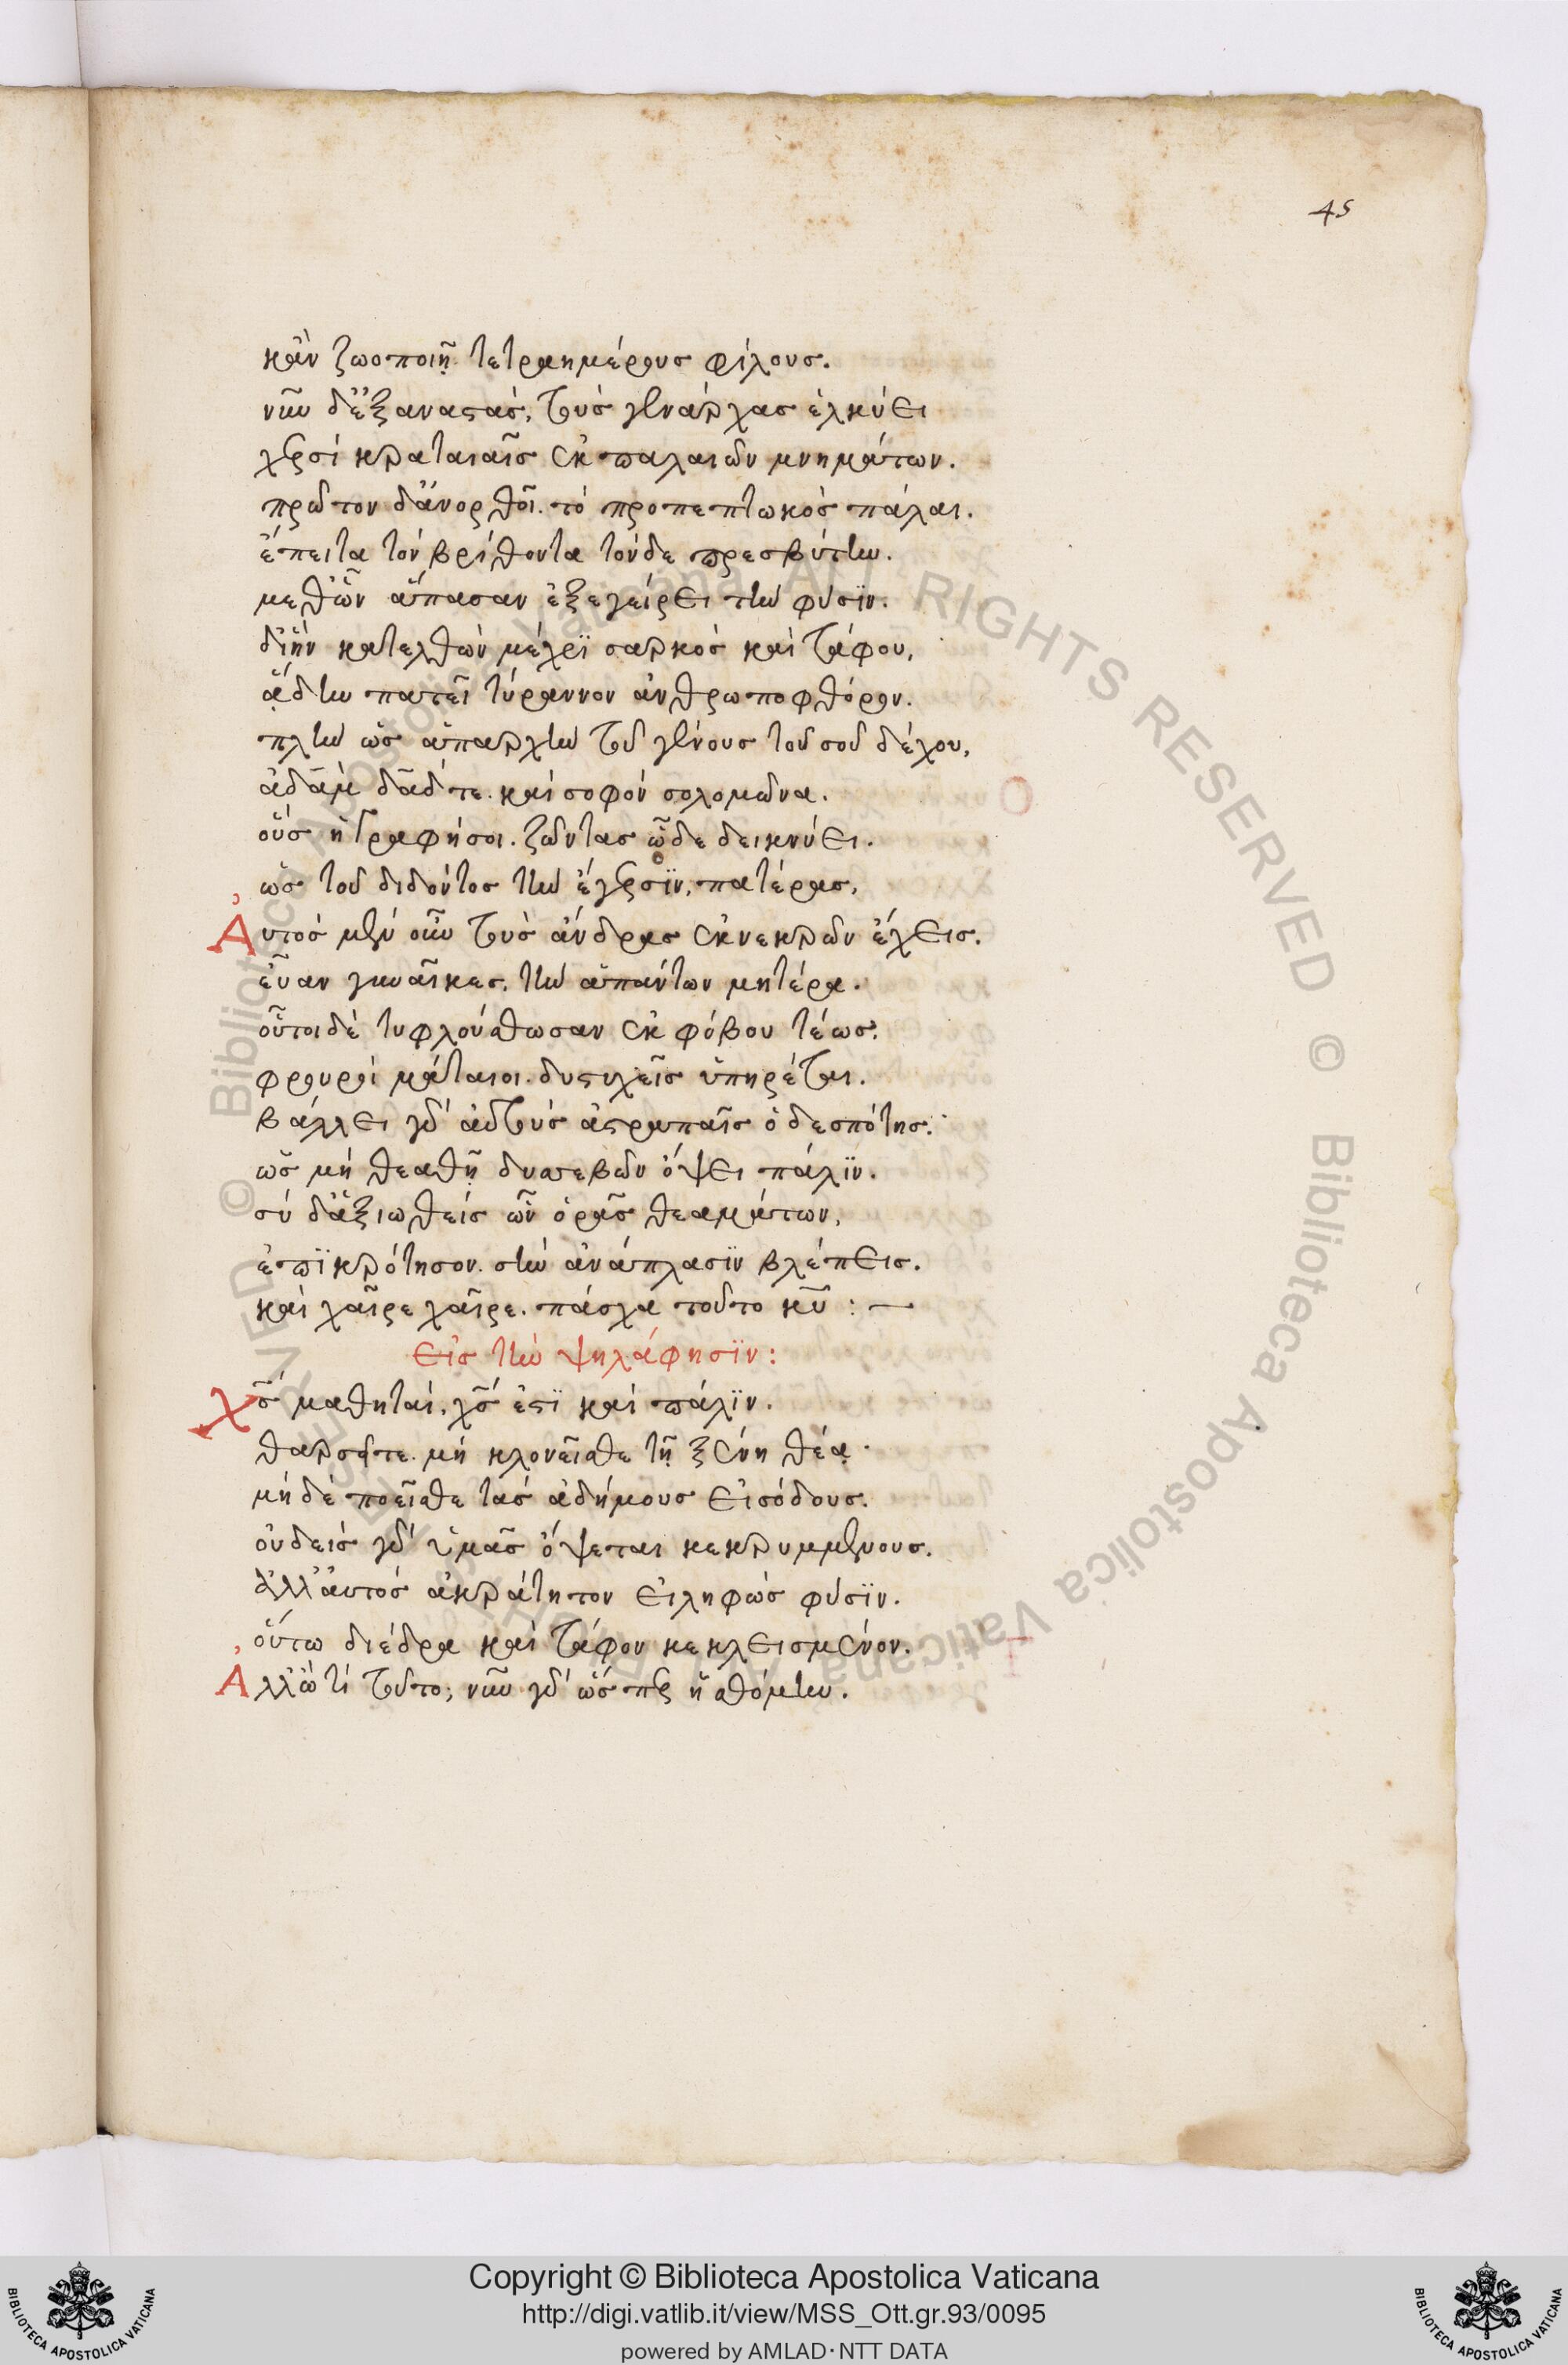 45
κἂν ζωοποιῇ τετραημέρους φίλους.
νῦν δ' ἐξαναστὰς, τοὺς γενάρχας ἑλκύει
χερσὶ κραταιαῖς ἐκ παλαιῶν μνημάτων.
πρῶτον δ' ἀνορθοῖ. τὸ προπεπτωκὸς πάλαι.
ἔπειτα τὸν βρίθοντα τόνδε πρεσβύτην.
μεθ' ὧν ἅπασαν ἐξεγείρει τὴν φύσϊν.
δι' ἣν κατελθὼν μέχρϊ σαρκὸς καὶ τάφου,
ᾅδην πατεῖ τύραννον ἀνθρωποφθόρον.
πλὴν ὡς ἀπαρχὴν τοῦ γένους τοῦ σοῦ δέχου,
ἀδὰμ δᾱδ τε. καὶ σοφὸν σολομῶνα.
οὓς ἡ γραφή σοι. ζῶντας ὧδε δεικνύει.
ὡς τοῦ διδόντος τὴν ἔγερσϊν, πατέρας,
Αὐτὸς μὲν οὖν τοὺς ἄνδρας ἐκ νεκρῶν ἔχεις.
εὖαν γυναῖκες. τὴν ἁπάντων μητέρα.
οὗτοι δὲ τυφλούσθωσαν ἐκ φόβου τέως.
φρουροὶ μάταιοι. δυστυχεῖς ὑπηρέται.
βάλλει γὰρ αὐτοὺς ἀστραπαῖς ὁ δεσπότης.
ὡς μὴ θεαθῇ δυσσεβῶν ὄψει πάλϊν.
σὺ δ' ἀξιωθεὶς ὧν ὁρᾷς θεαμάτων,
ἐπϊκρότησον. σὴν ἀνάπλασϊν βλέπεις.
καὶ χαῖρε χαῖρε. πάσχα τοῦτο κῡ : —
Εἰς τὴν ψηλάφησϊν :
Χς̄ μαθηταὶ, χς̄ ἐστϊ καὶ πάλϊν.
θαρσεῖτε. μὴ κλονεῖσθε τῇ ξένῃ θέᾳ.
μὴ δὲ ποεῖσθε τὰς ἀδήμους εἰσόδους.
οὐδεὶς γὰρ ὑμᾶς ὄψεται κεκρυμμένους.
ἀλλ' αὐτὸς ἀκράτητον εἰληφὼς φύσϊν.
οὕτω διέδρα καὶ τάφον κεκλεισμένον.
Ἀλλ' ὦ τί τοῦτο; νῦν γὰρ ὥσπερ ᾐσθόμην.
Copyright © Biblioteca Apostolica Vaticana
http://digi.vatlib.it/view/MSS_Ott.gr.93/0095
powered by AMLAD·NTT DATA